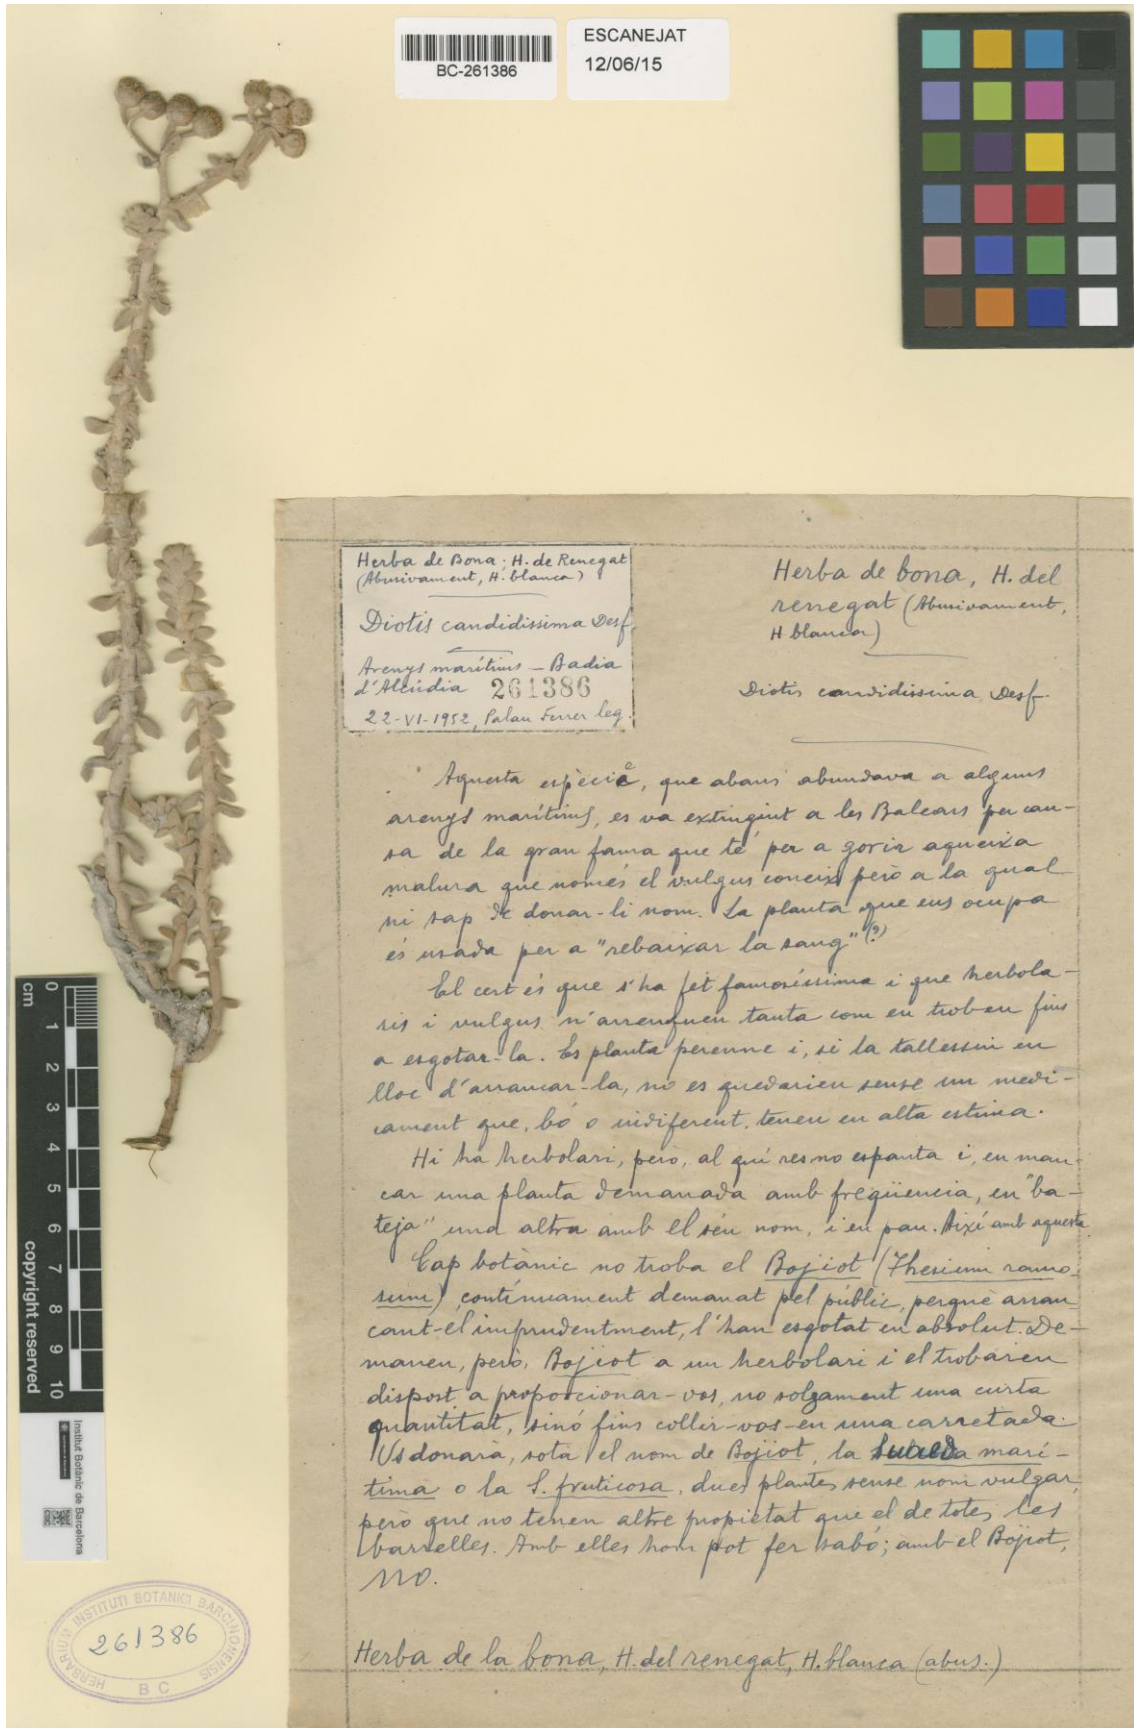 BC-261386
ESCANEJAT
12/06/15
Herba de Bona; H. de Renegat
(Abusivament, H. blanca)
Diotis candidissima Desf.
Arenys marítims - Badia
d'Alcúdia 261386
22-VI-1952, Palau Ferrer leg.
Herba de bona, H. del
renegat (Abusivament,
H blanca)
Diotis candidissima Desf.
Aquesta espècie, que abans abundava a alguns
arenys marítims, es va extingint a les Balears per cau-
sa de la gran fama que té per a gorir aqueixa
malura que només el vulgus coneix però a la qual
ni sap de donar-li nom. La planta que ens ocupa
és usada per a "rebaixar la sang" (?)
El cert és que s'ha fet famosíssima i que herbola-
ris i vulgus n'arrenquen tanta com en troben fins
a esgotar-la. Es planta perenne i, si la tallessin en
lloc d'arrancar-la, no es quedarien sense un medi-
cament que, bó o indiferent, tenen en alta estima.
Hi ha herbolari, però, al quí res no espanta i, en man-
car una planta demanada amb freqüencia, en "ba-
teja" una altra amb el séu nom, i en pau. Així amb aquesta
Cap botànic no troba el Bojiot (Thesium ramo-
sum), contínuament demanat pel públic, perquè arran
cant-el imprudentment, l'han esgotat en absolut. De-
manen, però, Bojiot a un herbolari i el trobaren
dispost a proporcionar-vos, no solzament una curta
quantitat, sinó fins collir-vos-en una carretada.
Us donarà, sota el nom de Bojiot, la Suaeda marí-
tima o la S. fruticosa, dues plantes sense nom vulgar,
però que no tenen altre propietat que el de totes les
barrelles. Amb elles hom pot fer sabó; amb el Bojiot,
no.
Herba de la bona, H. del renegat, H. blanca (abus.)
0 1 2 3 4 5 6 7 8 9 10
cm
copyright reserved
Institut Botànic de Barcelona
HERBARIUM INSTITUTI BOTANICI BARCINONENSIS
261386
BC